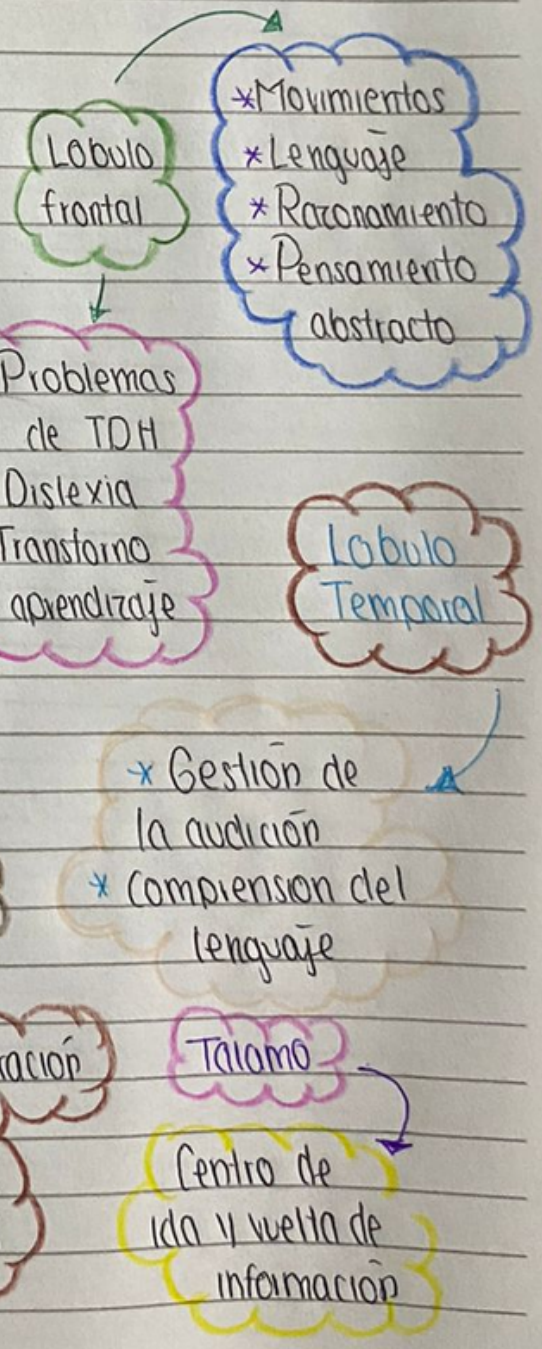 Lobulo
frontal
*Movimientos
*Lenguaje
*Razonamiento
*Pensamiento
abstracto
Problemas
de TDH
Dislexia
Transtorno
aprendizaje
Lobulo
Temporal
* Gestión de
la audición
* Comprension del
lenguaje
ración
Talamo
Centro de
ida y vuelta de
información